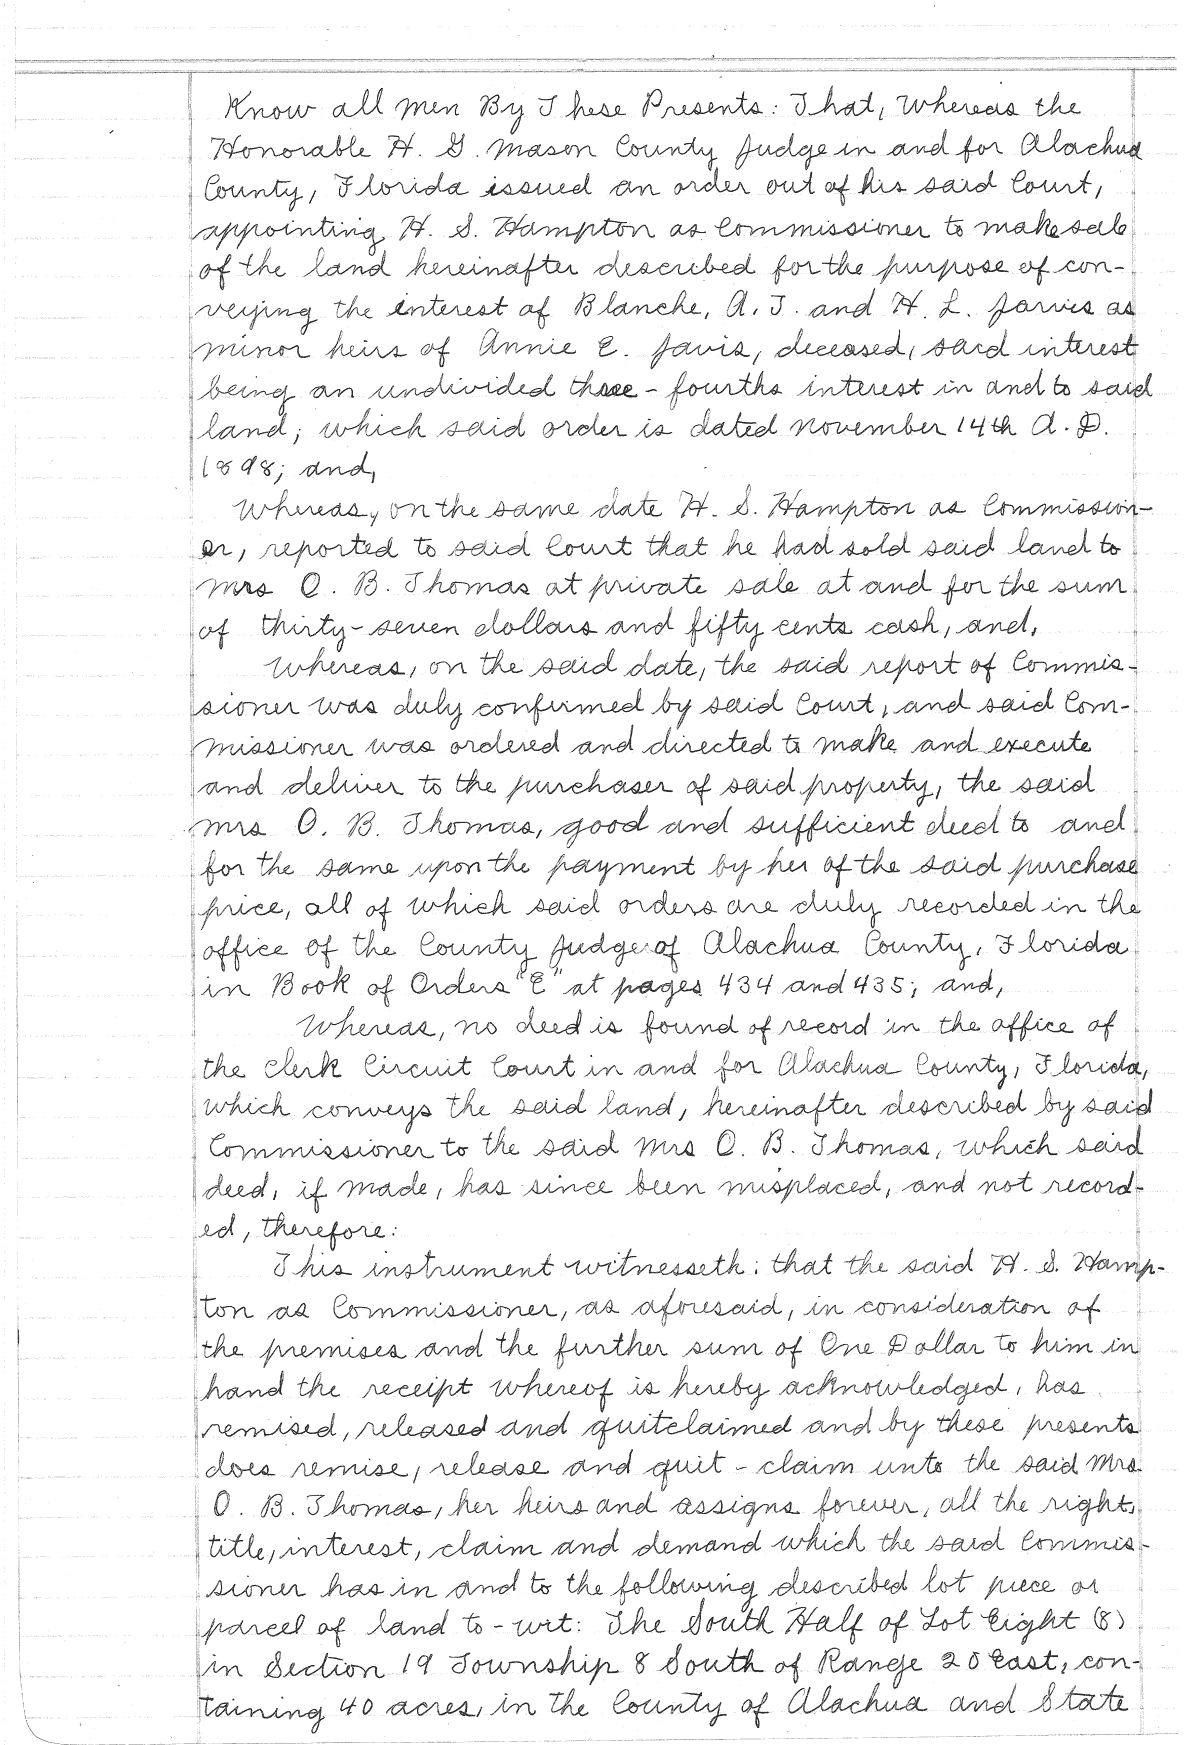 Know all Men By These Presents: That, Whereas the
Honorable H. G. Mason County Judge in and for Alachua
County, Florida issued an order out of his said Court,
appointing H. S. Hampton as Commissioner to make sale
of the land hereinafter described for the purpose of con-
veying the interest of Blanche, A. J. and H. L. Jarvis as
minor heirs of Annie E. Javis, deceased, said interest
being an undivided three-fourths interest in and to said
land; which said order is dated November 14th A. D.
1898; and,
Whereas, on the same date H. S. Hampton as Commission-
er, reported to said Court that he had sold said land to
Mrs O. B. Thomas at private sale at and for the sum
of thirty-seven dollars and fifty cents cash, and,
Whereas, on the said date, the said report of Commis-
sioner was duly confirmed by said Court, and said Com-
missioner was ordered and directed to make and execute
and deliver to the purchaser of said property, the said
Mrs O. B. Thomas, good and sufficient deed to and
for the same upon the payment by her of the said purchase
price, all of which said orders are duly recorded in the
office of the County Judge of Alachua County, Florida
in Book of Orders "E" at pages 434 and 435; and,
Whereas, no deed is found of record in the office of
the Clerk Circuit Court in and for Alachua County, Florida,
which conveys the said land, hereinafter described by said
Commissioner to the said Mrs O. B. Thomas, which said
deed, if made, has since been misplaced, and not record-
ed, therefore:
This instrument witnesseth: that the said H. S. Hamp-
ton as Commissioner, as aforesaid, in consideration of
the premises and the further sum of One Dollar to him in
hand the receipt whereof is hereby acknowledged, has
remised, released and quitclaimed and by these presents
does remise, release and quit-claim unto the said Mrs.
O. B. Thomas, her heirs and assigns forever, all the right,
title, interest, claim and demand which the said Commis-
sioner has in and to the following described lot piece or
parcel of land to-wit: The South Half of Lot Eight (8)
in Section 19 Township 8 South of Range 20 East, con-
taining 40 acres, in the County of Alachua and State